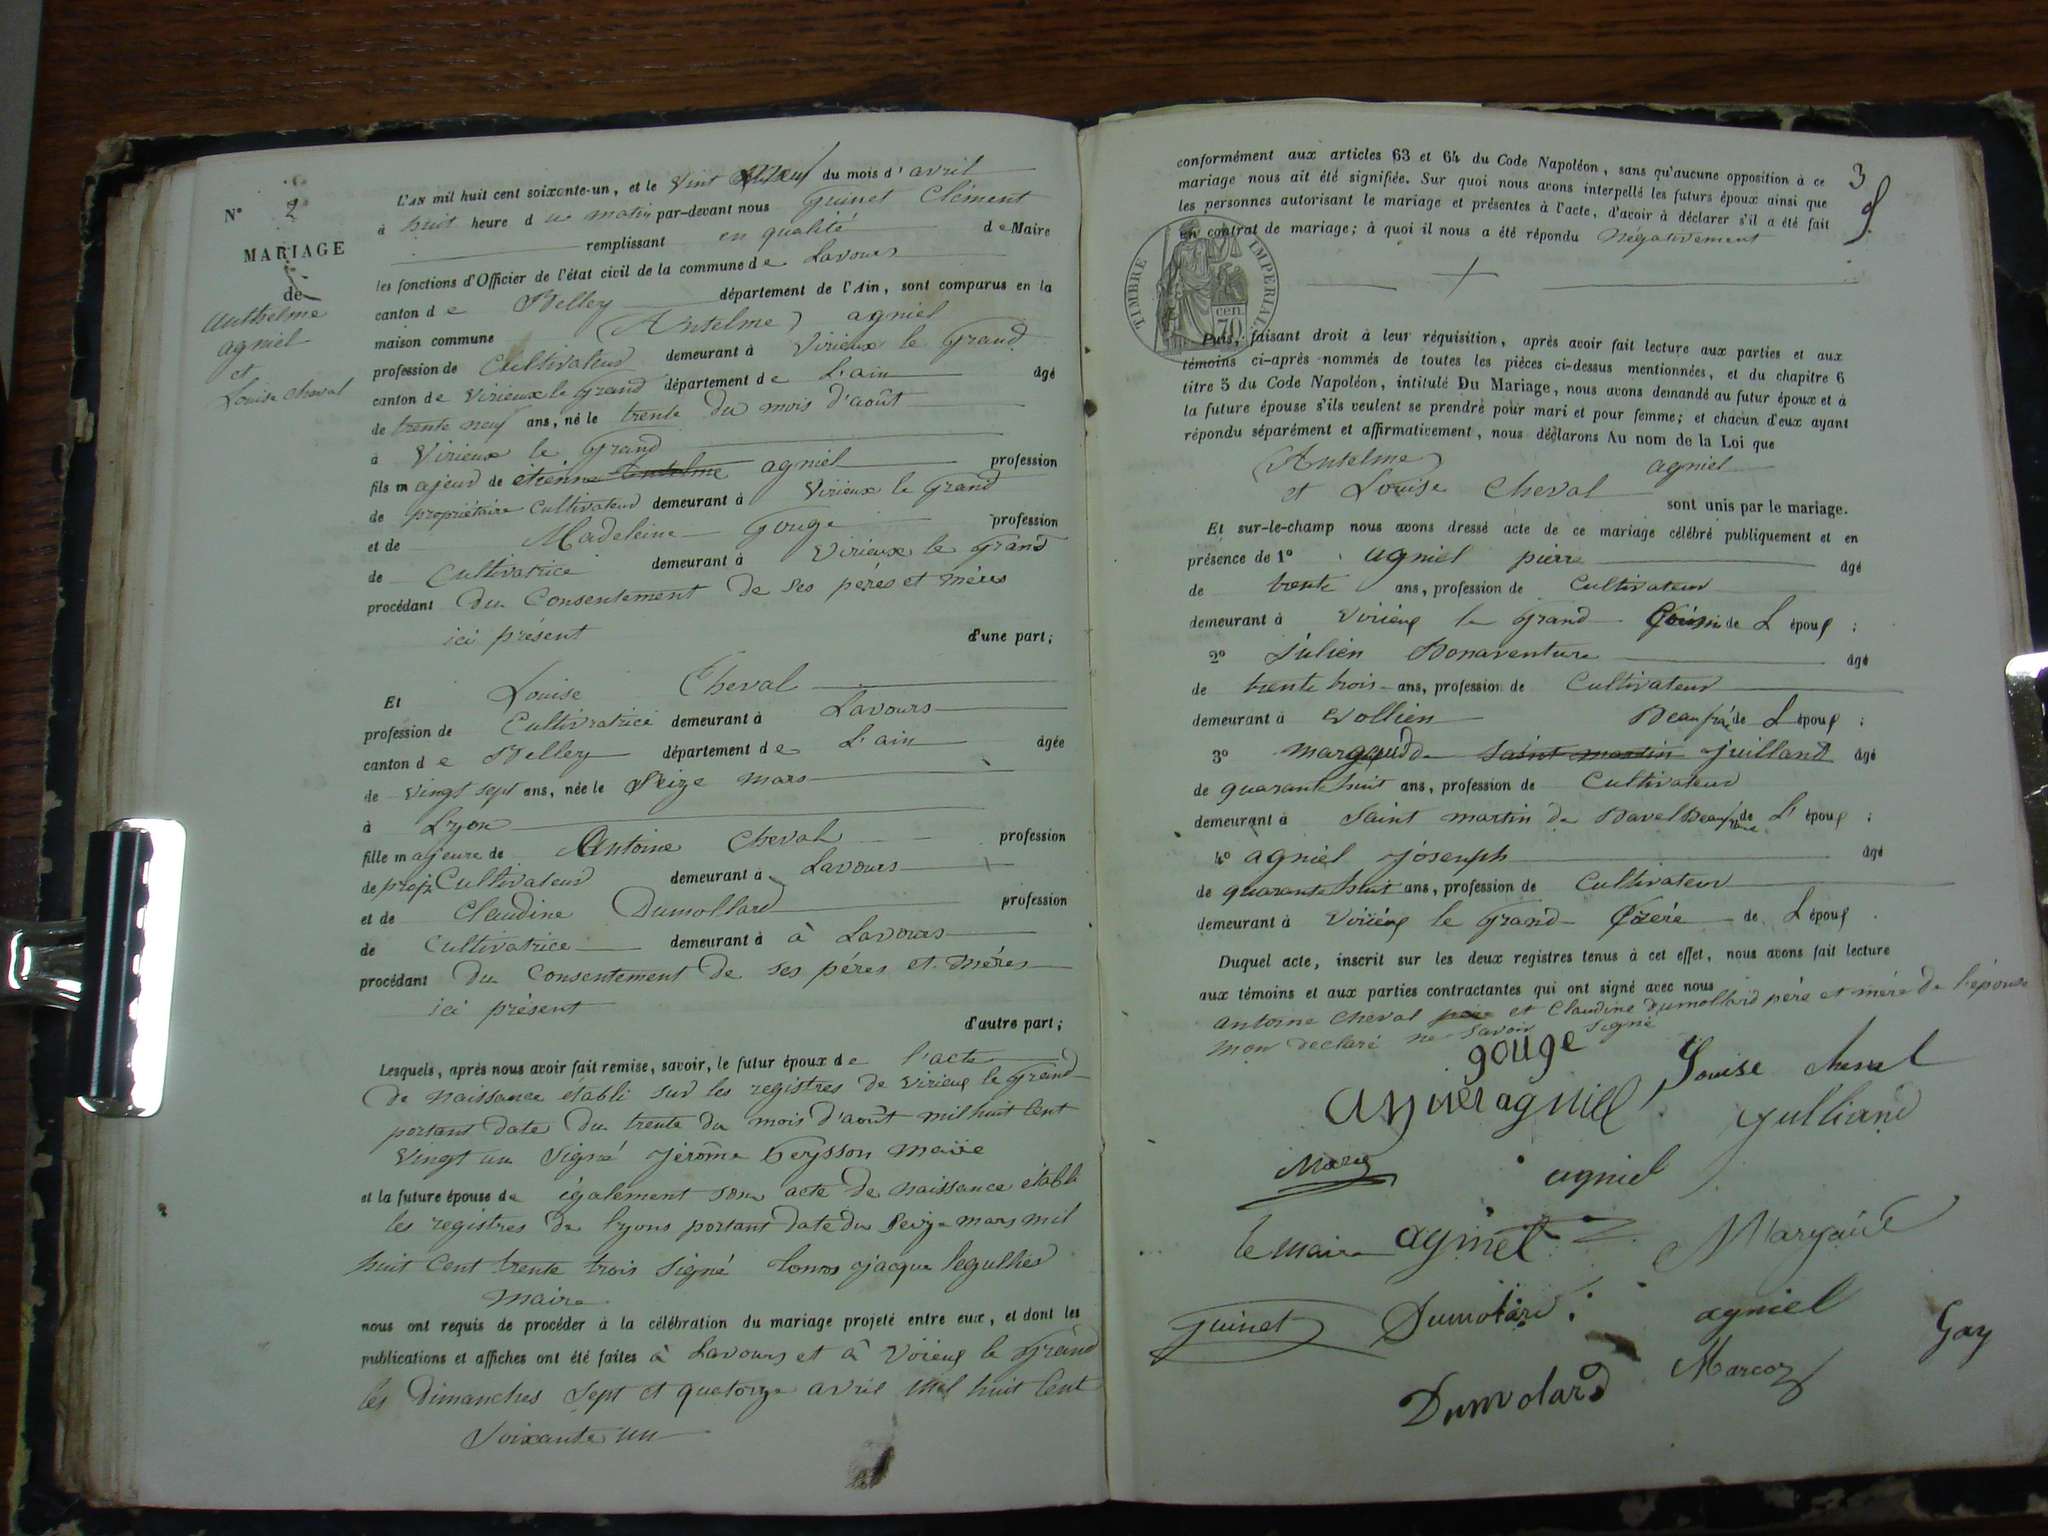 N° 2
MARIAGE
de
Anthelme
agniel
et
Louise Cheval
L'AN mil huit cent soixante-un, et le vint du mois d'avril
à huit heure du matin par-devant nous Guinet Clément
remplissant en qualité de Maire
les fonctions d'Officier de l'état civil de la commune de Lavours
canton de Belley département de l'Ain, sont comparus en la
maison commune (Antelme) agniel
profession de Cultivateur demeurant à Virieux le Grand
canton de Virieux le Grand département de L'ain âgé
de trente neuf ans, né le trente du mois d'août
à Virieux le Grand
fils majeur de étienne Antelme agniel profession
de propriétaire Cultivateur demeurant à Virieux le Grand
et de Madeleine Gouge profession
de Cultivatrice demeurant à Virieux le Grand
procédant du Consentement de ses péres et méres
ici présent d'une part;
Et Louise Cheval
profession de Cultivatrice demeurant à Lavours
canton de Belley département de L'ain âgée
de vingt sept ans, née le Seize mars
à Lyon
fille majeure de Antoine Cheval profession
de prop. Cultivateur demeurant à Lavours
et de Claudine Dumollard profession
de Cultivatrice demeurant à à Lavours
procédant du Consentement de ses péres et méres
ici présent
d'autre part;
Lesquels, après nous avoir fait remise, savoir, le futur époux de l'acte
de naissance établi sur les registres de Virieux le Grand
portant date du trente du mois d'août mil huit Cent
vingt un Signé Jérôme Maire
et la future épouse de également son acte de naissance établi
les registres de Lyons portant date du Seize mars mil
huit Cent trente trois Signé jacque
Maire
nous ont requis de procéder à la célébration du mariage projeté entre eux, et dont les
publications et affiches ont été faites à Lavours et à Virieux le Grand
les Dimanches Sept et quatorze avril mil huit Cent
Soixante un
3
conformément aux articles 63 et 64 du Code Napoléon, sans qu'aucune opposition à ce
mariage nous ait été signifiée. Sur quoi nous avons interpellé les futurs époux ainsi que
les personnes autorisant le mariage et présentes à l'acte, d'avoir à déclarer s'il a été fait
un contrat de mariage; à quoi il nous a été répondu Négativement
TIMBRE IMPERIAL
70 cen
Puis, faisant droit à leur réquisition, après avoir fait lecture aux parties et aux
témoins ci-après nommés de toutes les pièces ci-dessus mentionnées, et du chapitre 6
titre 5 du Code Napoléon, intitulé Du Mariage, nous avons demandé au futur époux et à
la future épouse s'ils veulent se prendre pour mari et pour femme; et chacun d'eux ayant
répondu séparément et affirmativement, nous déclarons Au nom de la Loi que
(Antelme) agniel
et Louise Cheval
sont unis par le mariage.
Et sur-le-champ nous avons dressé acte de ce mariage célébré publiquement et en
présence de 1° agniel pierre âgé
de trente ans, profession de Cultivateur
demeurant à Virieux le Grand de L époux ;
2° Julien Bonaventure âgé
de trente trois ans, profession de Cultivateur
demeurant à Vollien Beaufré de L époux ;
3° Saint martin Juilland âgé
de quarante huit ans, profession de Cultivateur
demeurant à Saint martin de Bavel Beaufrère de L' époux ;
4° agniel joseph âgé
de quarante huit ans, profession de Cultivateur
demeurant à Virieux le Grand de L époux
Duquel acte, inscrit sur les deux registres tenus à cet effet, nous avons fait lecture
aux témoins et aux parties contractantes qui ont signé avec nous
antoine Cheval et Claudine Dumollard pére et mére de l'épouse
mon declaré ne Savoir Signé
gouge
Louise cheval
agniel
Julliand
agniel
le Maire agniel
Guinet Dumolard agniel
Gay
Dumolard Marcoz